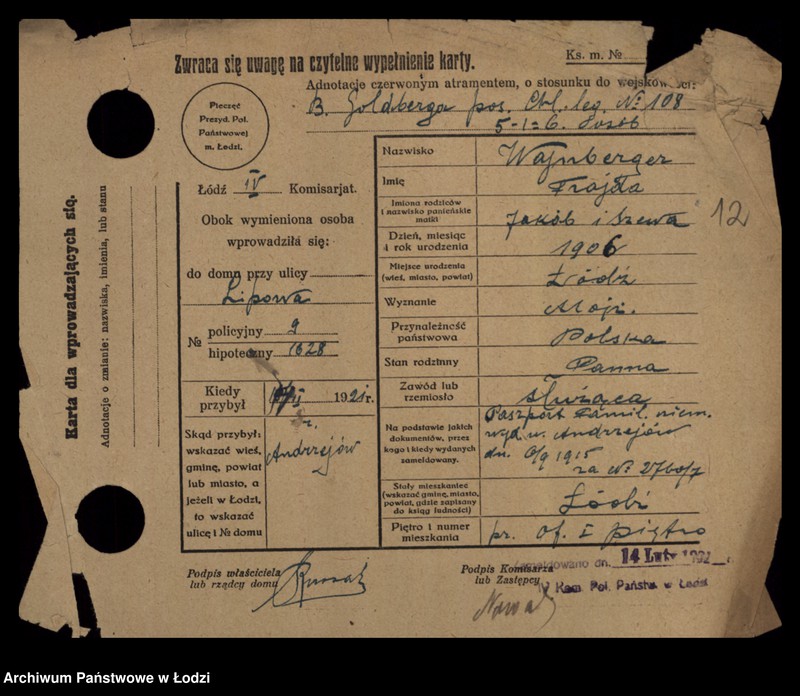 Zwraca się uwagę na czytelne wypełnienie karty.
Ks. m. №
Adnotacje czerwonym atramentem, o stosunku do wojskowości:
B. Goldberga pos. leg. № 108
Pieczęć
Prezyd. Pol.
Państwowej
m. Łodzi.
Karta dla wprowadzających się.
Adnotacje o zmianie: nazwiska, imienia, lub stanu
Łódź IV Komisarjat.
Obok wymieniona osoba
wprowadziła się:
do domu przy ulicy
Lipowa
№ policyjny 9
hipoteczny 1628
Kiedy
przybył
1921 r.
Skąd przybył:
wskazać wieś,
gminę, powiat
lub miasto, a
jeżeli w Łodzi,
to wskazać
ulicę i № domu
Andrzejów
Nazwisko Wajnberger
Imię Frajda
Imiona rodziców
i nazwisko panieńskie
matki
Jakób i Szewa
12
Dzień, miesiąc
i rok urodzenia
1906
Miejsce urodzenia
(wieś, miasto, powiat)
Łódź
Wyznanie Mojż.
Przynależność
państwowa
Polska
Stan rodzinny Panna
Zawód lub
rzemiosło
służąca
Na podstawie jakich
dokumentów, przez
kogo i kiedy wydanych
zameldowany.
Paszport famil. niem.
wyd. w. Andrzejów
dn. 6/9 1915
za №
Stały mieszkaniec
(wskazać gminę, miasto,
powiat, gdzie zapisany
do ksiąg ludności)
Łódź
Piętro i numer
mieszkania
pr. of. I piętro
Podpis właściciela
lub rządcy domu
Podpis Komisarza
lub Zastępcy
Zameldowano dn. 14 Luty 1921 r.
IV Kom. Pol. Państw. w Łodzi
Archiwum Państwowe w Łodzi